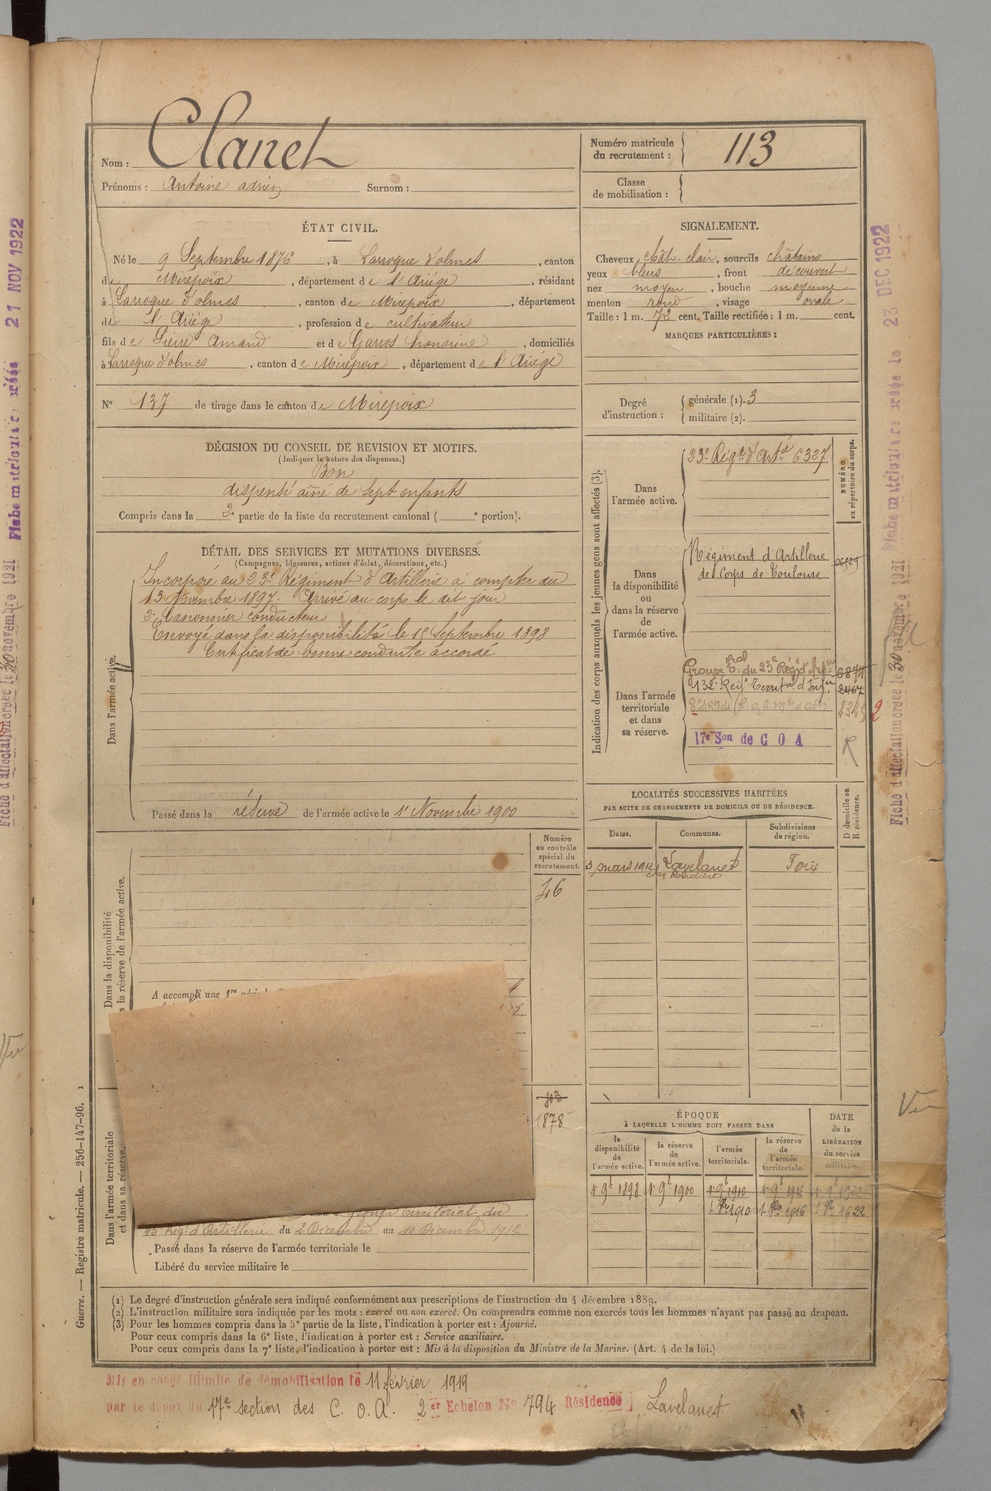 Nom : Clanet
Prénoms : Antoine adrien Surnom :
Numéro matricule du recrutement : 113
Classe de mobilisation :
ÉTAT CIVIL.
Né le 9 Septembre 1876, à Laroque d'olmes, canton
de Mirepoix, département de l'Ariége, résidant
à Laroque d'olmes, canton de Mirepoix, département
de l'Ariége, profession de cultivateur
fils de Pierre Amand et de Garros honorine, domiciliés
à Laroque d'olmes, canton de Mirepoix, département de l'Ariége
N° 137 de tirage dans le canton de Mirepoix
SIGNALEMENT.
Cheveux chât. clair, sourcils châtains
yeux bleus, front découvert
nez moyen, bouche moyenne
menton rond, visage ovale
Taille : 1 m. 72 cent. Taille rectifiée : 1 m. cent.
MARQUES PARTICULIÈRES :
Degré d'instruction : générale (1). 3
militaire (2).
DÉCISION DU CONSEIL DE REVISION ET MOTIFS.
(Indiquer la nature des dispenses.)
Bon
dispensé aîné de sept enfants
Compris dans la 2e partie de la liste du recrutement cantonal ( e portion).
DÉTAIL DES SERVICES ET MUTATIONS DIVERSES.
(Campagnes, blessures, actions d'éclat, décorations, etc.)
Dans l'armée active.
Incorporé au 23e Régiment d'Artillerie à compter du
13 Novembre 1897. Arrivé au corps le dit jour
2e Canonnier conducteur
Envoyé dans la disponibilité le 18 Septembre 1898
Certificat de bonne conduite accordé
Passé dans la réserve de l'armée active le 1er Novembre 1900
Indication des corps auxquels les jeunes gens sont affectés (3).
NUMÉRO au répertoire du corps.
Dans l'armée active.
23e Régt d'Artie 6327
Dans la disponibilité ou dans la réserve de l'armée active.
Régiment d'Artillerie
de Corps de Toulouse
Dans l'armée territoriale et dans sa réserve.
Groupe Trial du 23e Régt d'Artie
132e Régt Territal d'Infie 2467
17e Son de C O A
R
LOCALITÉS SUCCESSIVES HABITÉES
PAR SUITE DE CHANGEMENTS DE DOMICILE OU DE RÉSIDENCE.
D domicile ou R résidence.
Dates. Communes. Subdivisions de région.
3 mars 1912 Lavelanet Foix
Dans la disponibilité
la réserve de l'armée active.
Numéro au contrôle spécial du recrutement.
46
A accompli une 1re
Dans l'armée territoriale et dans sa réserve.
1878
groupe territorial du
23e Régt d'Artillerie du 2 Décembre au 10 Décembre 1912
Passé dans la réserve de l'armée territoriale le
Libéré du service militaire le
ÉPOQUE
À LAQUELLE L'HOMME DOIT PASSER DANS
DATE de la LIBÉRATION du service militaire.
la disponibilité de l'armée active. la réserve de l'armée active. l'armée territoriale. la réserve de l'armée territoriale.
1900 1910 1916
1910 1916 1922
(1) Le degré d'instruction générale sera indiqué conformément aux prescriptions de l'instruction du 4 décembre 1889.
(2) L'instruction militaire sera indiquée par les mots : exercé ou non exercé. On comprendra comme non exercés tous les hommes n'ayant pas passé au drapeau.
(3) Pour les hommes compris dans la 5e partie de la liste, l'indication à porter est : Ajourné.
Pour ceux compris dans la 6e liste, l'indication à porter est : Service auxiliaire.
Pour ceux compris dans la 7e liste, l'indication à porter est : Mis à la disposition du Ministre de la Marine. (Art. 4 de la loi.)
Guerre. — Registre matricule. — 256-147-96.
Mis en congé illimité de démobilisation le 11 février 1919
par le dépôt du 17e section des C. O. A. 2er Echelon N° 794 Résidence Lavelanet
Fiche matriculaire créée le 21 NOV 1922
Fiche d'affectation créée le 30 novembre 1921
Fiche matriculaire créée le 23 DEC 1922
Fiche d'affectation créée le 30 novembre 1921
Vu